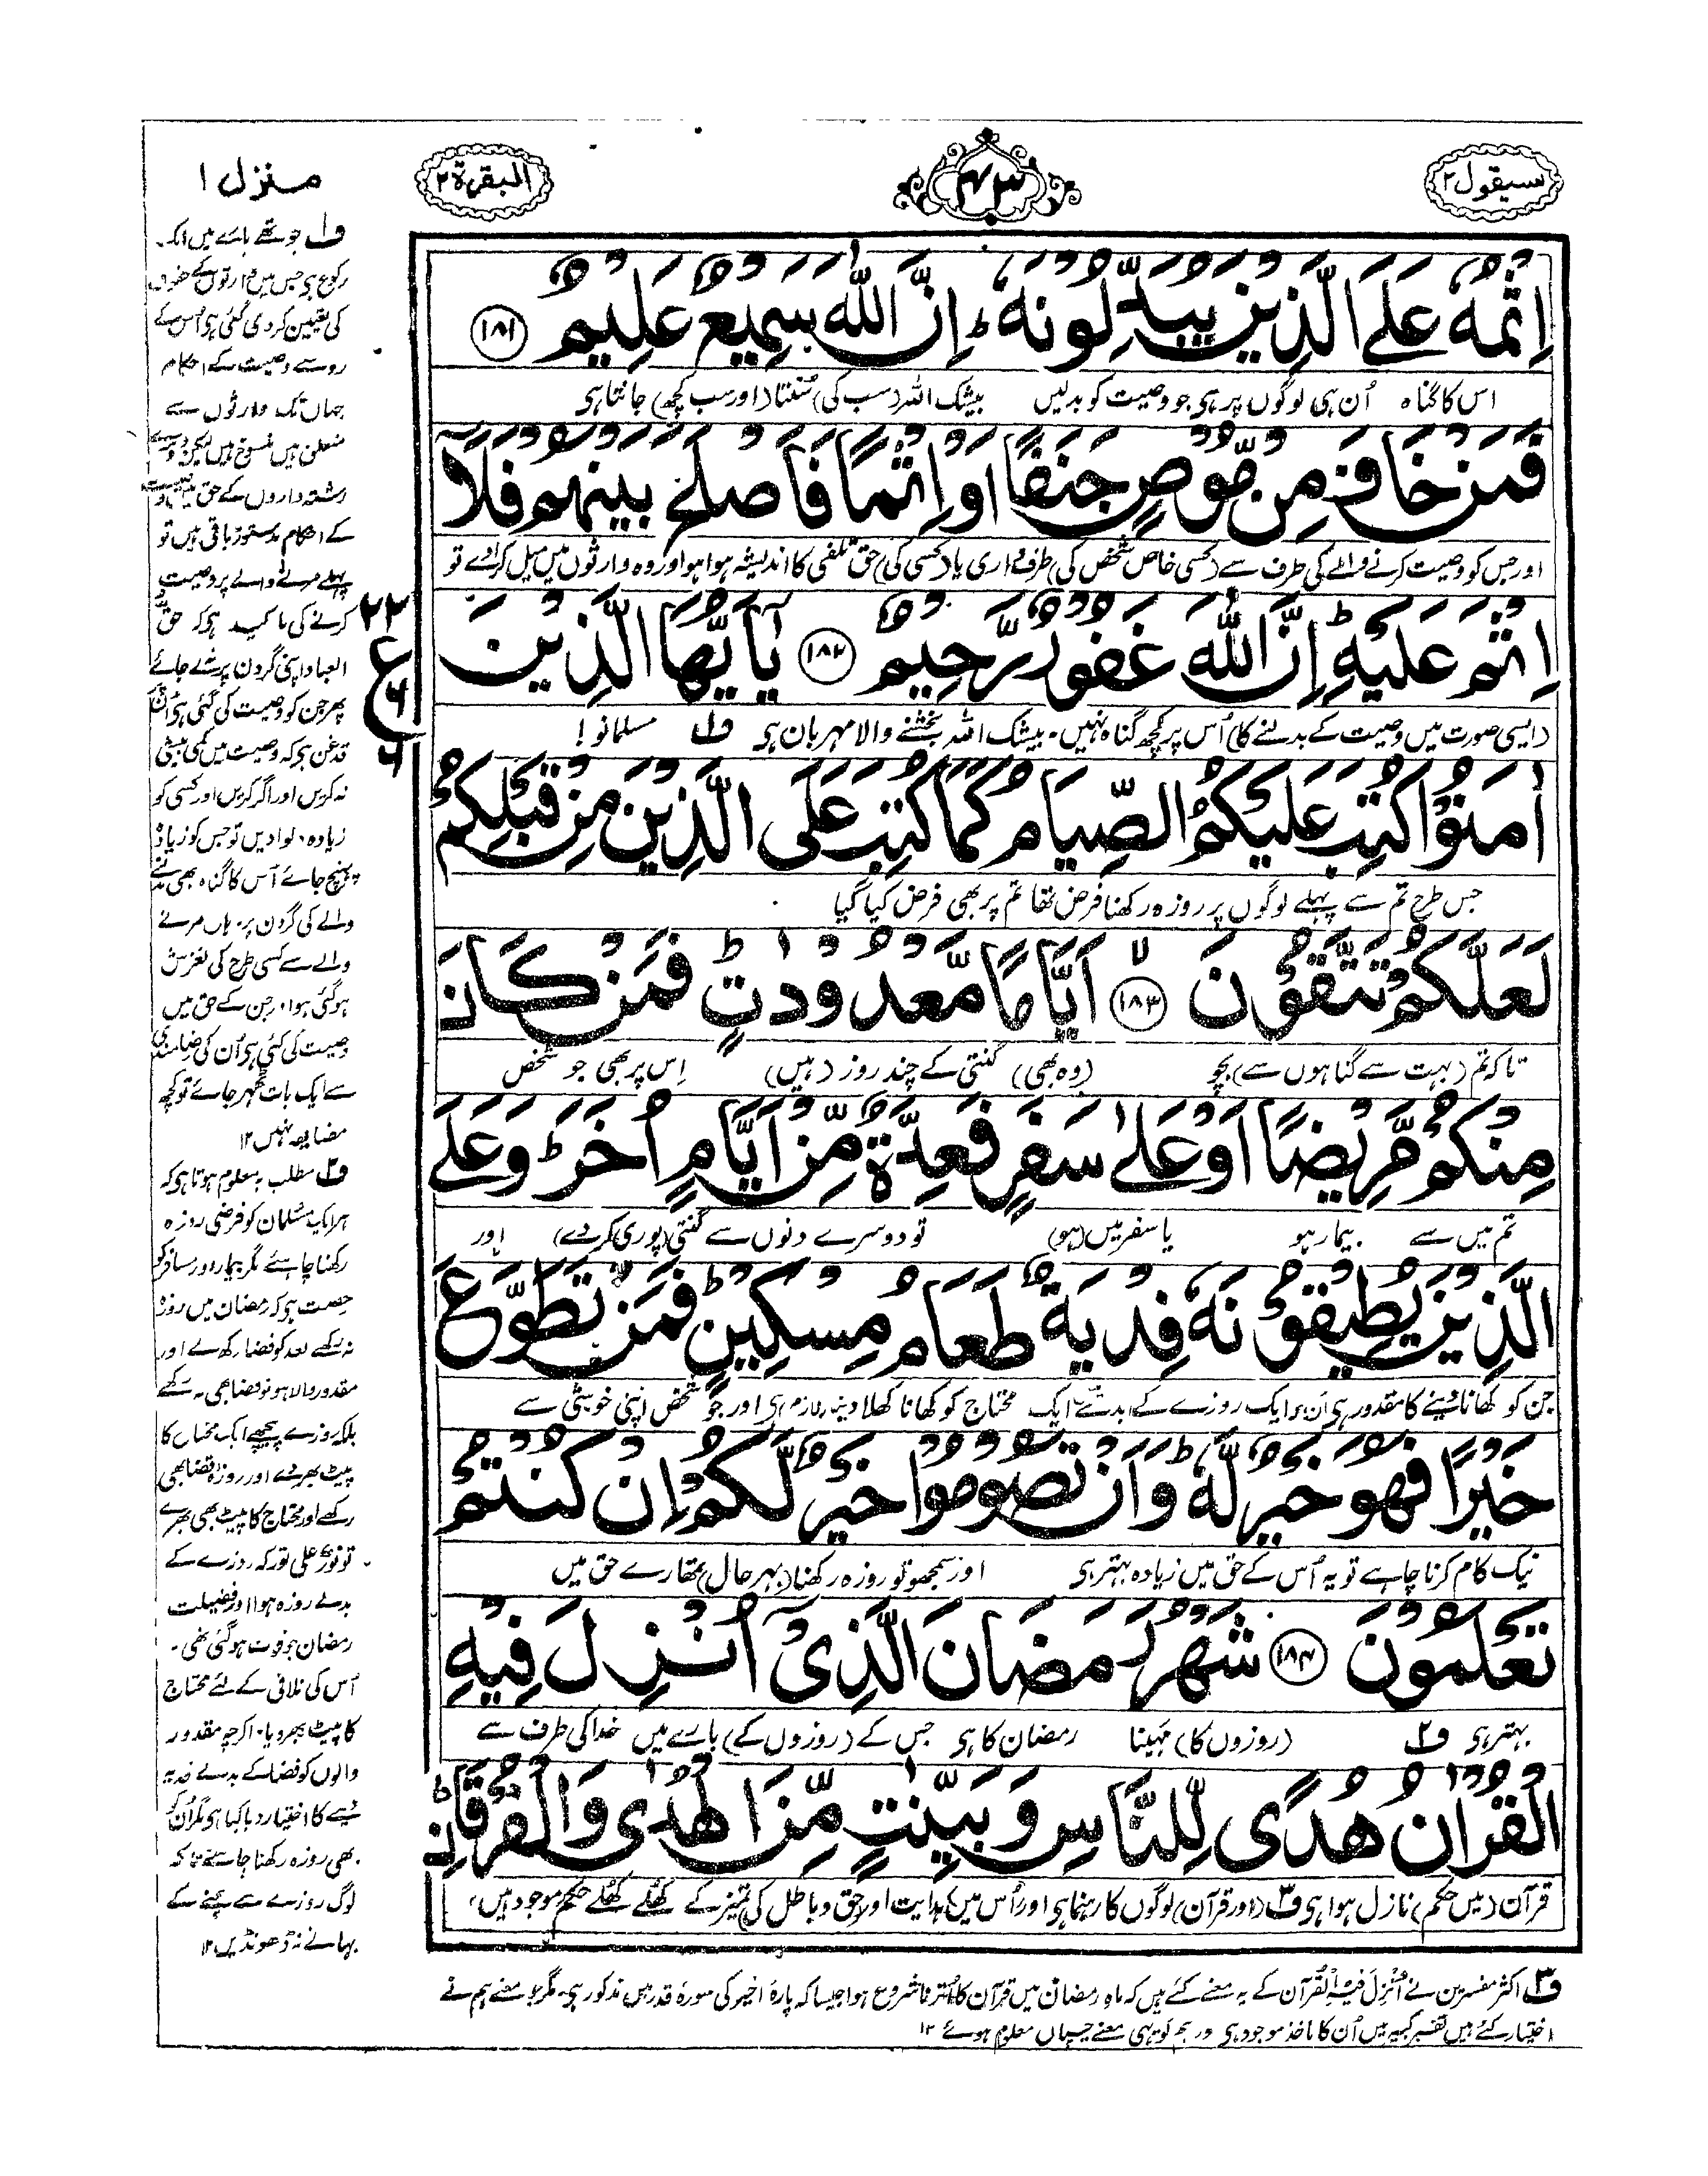 سیقول ۲
۴۳
البقرة ۲
منزل ۱
اِثْمُهٗ عَلَى الَّذِیْنَ یُبَدِّلُوْنَهٗ ؕ اِنَّ اللّٰهَ سَمِیْعٌ عَلِیْمٌ ۱۸۱
اس کا گناہ اُن ہی لوگوں پر ہی جو وصیت کو بدلیں بیشک اللہ (سب کی) سُنتا (اور سب کچھ) جانتا ہی
فَمَنْ خَافَ مِنْ مُّوْصٍ جَنَفًا اَوْ اِثْمًا فَاَصْلَحَ بَیْنَهُمْ فَلَاۤ
اور جس کو وصیت کرنے والے کی طرف سے (کسی خاص شخص کی) طرف داری یا (کسی کی) حق تلفی کا اندیشہ ہوا ہو اور وہ وارثوں میں میل کرادے تو
اِثْمَ عَلَیْهِ ؕ اِنَّ اللّٰهَ غَفُوْرٌ رَّحِیْمٌ ۱۸۲ یٰۤاَیُّهَا الَّذِیْنَ
(ایسی صورت میں وصیت کے بدلنے کا) اُس پر کچھ گناہ نہیں۔ بیشک اللہ بخشنے والا مہربان ہی ف۱ مسلمانو!
اٰمَنُوْا كُتِبَ عَلَیْكُمُ الصِّیَامُ كَمَا كُتِبَ عَلَى الَّذِیْنَ مِنْ قَبْلِكُمْ
جس طرح تم سے پہلے لوگوں پر روزہ رکھنا فرض تھا تم پر بھی فرض کیا گیا
لَعَلَّكُمْ تَتَّقُوْنَ ۱۸۳ اَیَّامًا مَّعْدُوْدٰتٍ ؕ فَمَنْ كَانَ
تاکہ تم (بہت سے گناہوں سے) بچو (وہ بھی) گنتی کے چند روز (ہیں) اِس پر بھی جو شخص
مِنْكُمْ مَّرِیْضًا اَوْ عَلٰى سَفَرٍ فَعِدَّةٌ مِّنْ اَیَّامٍ اُخَرَ ؕ وَعَلَى
تم میں سے بیمار ہو یا سفر میں (ہو) تو دوسرے دنوں سے گنتی (پوری کردے) اور
الَّذِیْنَ یُطِیْقُوْنَهٗ فِدْیَةٌ طَعَامُ مِسْكِیْنٍ ؕ فَمَنْ تَطَوَّعَ
جن کو کھانا دینے کا مقدور ہی اُن پر ایک روزے کے بدلے ایک محتاج کو کھانا کھلا دینا لازم ہی اور جو شخص اپنی خوشی سے
خَیْرًا فَهُوَ خَیْرٌ لَّهٗ ؕ وَاَنْ تَصُوْمُوْا خَیْرٌ لَّكُمْ اِنْ كُنْتُمْ
نیک کام کرنا چاہے تو یہ اُس کے حق میں زیادہ بہتر ہی اور سمجھو تو روزہ رکھنا (بہر حال) تمھارے حق میں
تَعْلَمُوْنَ ۱۸۴ شَهْرُ رَمَضَانَ الَّذِیْۤ اُنْزِلَ فِیْهِ
بہتر ہی ف۲ (روزوں کا) مہینا رمضان کا ہی جس کے (روزوں کے) بارے میں خدا کی طرف سے
الْقُرْاٰنُ هُدًى لِّلنَّاسِ وَبَیِّنٰتٍ مِّنَ الْهُدٰى وَالْفُرْقَانِ ۚ
قرآن (میں حکم) نازل ہوا ہی ف۳ (اور قرآن) لوگوں کا رہنما ہی اور اُس میں ہدایت اور حق و باطل کی تمیز کے کھُلے کھُلے حکم موجود ہیں
۲۲
ع
۶
۶
ف۱ چوتھے پارے میں ایک
رکوع ہی جس میں وارثوں کے حقوق
کی تعیین کردی گئی ہی اُس کے
رو سے وصیت کے احکام
جہاں تک وارثوں سے
متعلق ہیں منسوخ ہیں لیکن دوسرے
رشتہ داروں کے حق میں وصیت
کے احکام بدستور باقی ہیں تو
پہلے مرنے والے پر وصیت
کرنے کی تاکید ہی کہ حق
العباد اپنی گردن پر نہ لے جائے
پھر جن کو وصیت کی گئی ہی اُن کو
قدغن ہی کہ وصیت میں کمی بیشی
نہ کریں اور اگر کریں اور کسی کو
زیادہ دلوادیں تو جس کو زیادہ
پہنچ جائے اُس کا گناہ بھی بدلنے
والے کی گردن پر۔ ہاں مرنے
والے سے کسی طرح کی لغزش
ہوگئی ہو اور جن کے حق میں
وصیت کی گئی ہی اُن کی رضامندی
سے ایک بات ٹھہر جائے تو کچھ
مضایقہ نہیں ۱۲
ف۲ مطلب یہ معلوم ہوتا ہی کہ
ہر ایک مسلمان کو فرضی روزہ
رکھنا چاہئے مگر بیمار اور مسافر کو
رخصت ہی کہ رمضان میں روزہ
نہ رکھے بعد کو قضا رکھ لے اور
مقدور والا ہو تو قضا بھی نہ رکھے
بلکہ روزے پیچھے ایک محتاج کا
پیٹ بھردے اور روزہ قضا بھی
رکھے اور محتاج کا پیٹ بھی بھرے
تو نورٌ علی نور کہ روزے کے
بدلے روزہ ہوا اور فضیلت
رمضان جو فوت ہوگئی تھی۔
اُس کی تلافی کے لئے محتاج
کا پیٹ بھر دیا۔ اگرچہ مقدور
والوں کو قضا کے بدلے فدیہ
دینے کا اختیار دیا گیا ہی مگر اُن کو
بھی روزہ رکھنا چاہئے تاکہ
لوگ روزے سے بچنے کے
بہانے نہ ڈھونڈیں ۱۲
ف۳ اکثر مفسرین نے اُنْزِلَ فِیْہِ الْقُرْآن کے یہ معنے کئے ہیں کہ ماہ رمضان میں قرآن کا اُترنا شروع ہوا جیسا کہ پارۂ اخیر کی سورۂ قدر میں مذکور ہی۔ مگر جو معنے ہم نے
اختیار کئے ہیں تفسیر کبیر میں اُن کا ماخذ موجود ہی اور ہم کو یہی معنے چسپاں معلوم ہوئے ۱۲